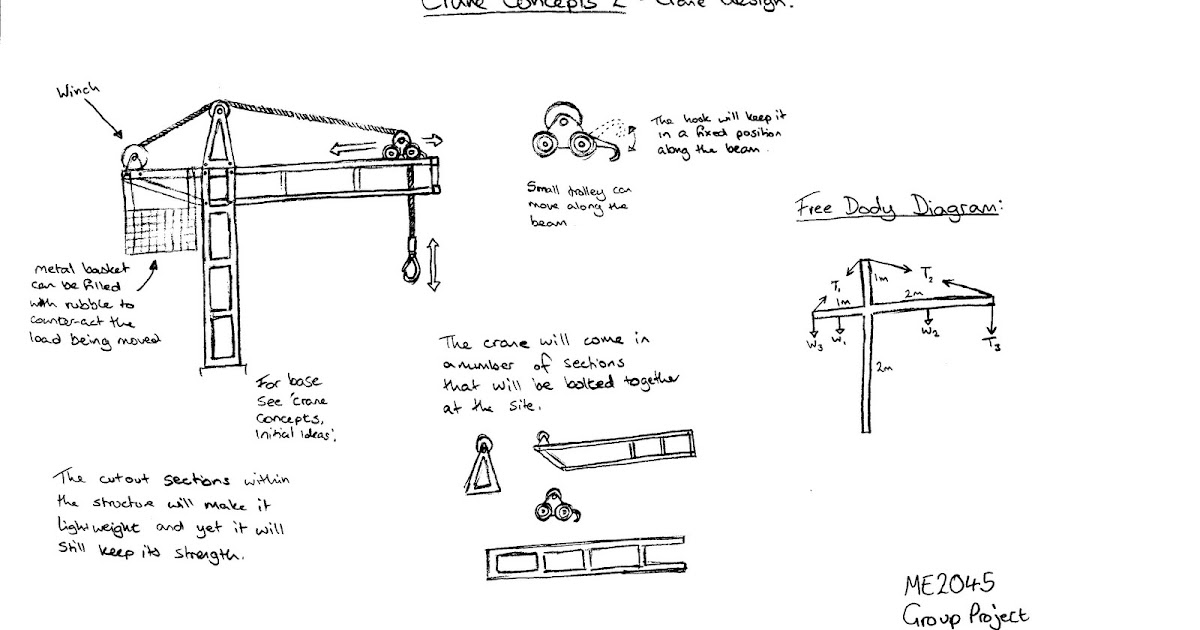 Crane Concepts 2 - Crane Design.
Winch
The hook will keep it
in a fixed position
along the beam.
Small trolley can
move along the
beam
Free Body Diagram:
T1
1m
1m
T2
2m
W3
W1
W2
T3
2m
Metal basket
can be filled
with rubble to
counter-act the
load being moved
The crane will come in
a number of sections
that will be bolted together
at the site.
For base
see 'crane
concepts,
Initial Ideas'.
The cutout sections within
the structure will make it
lightweight and yet it will
still keep its strength.
ME2045
Group Project